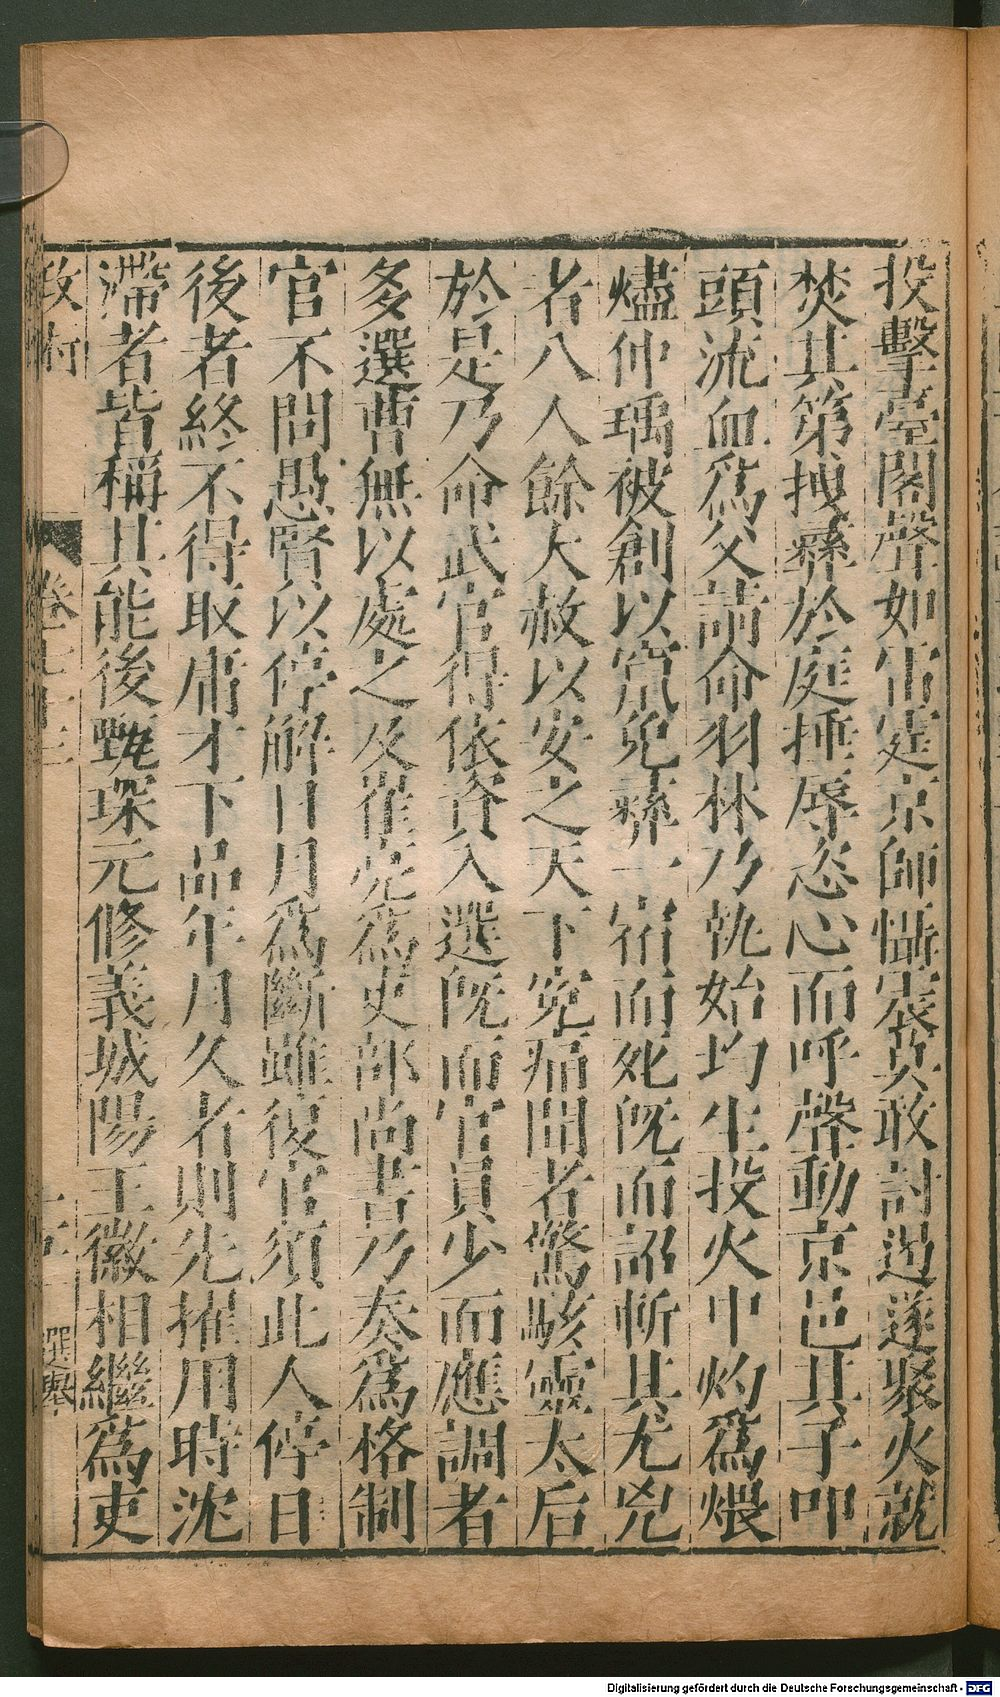 投擊臺閣聲如雷霆京師懾震莫敢討遏遂聚火就
焚其第拽彝於庭捶辱恣心而呼聲動京邑其子叩
頭流血爲父請命羽林乃執始均生投火中灼爲煨
燼仲瑀被創以竄免彝一宿而死既而詔斬其尤兇
者八人餘大赦以安之天下寃痛聞者驚駭靈太后
於是乃命武官得依資入選既而官員少而應調者
多選曹無以處之及崔亮爲吏部尚書乃奏爲格制
官不問愚賢以停解日月爲斷雖復官須此人停日
後者終不得取庸才下品年月久者則先擢用時沈
滯者皆稱其能後甄琛元修義城陽王徽相繼爲吏
卷七十三
選舉
Digitalisierung gefördert durch die Deutsche Forschungsgemeinschaft - DFG